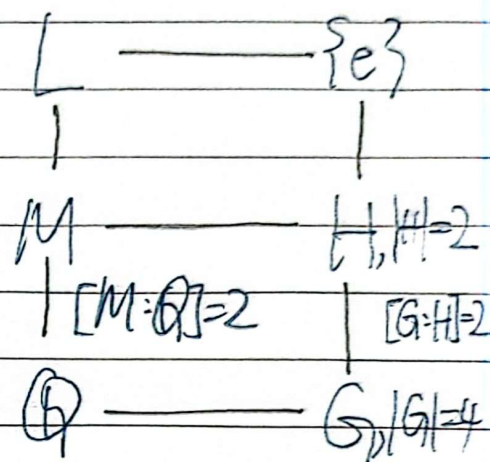 L {e}
M H, |H|=2
[M:Q]=2 [G:H]=2
Q G, |G|=4